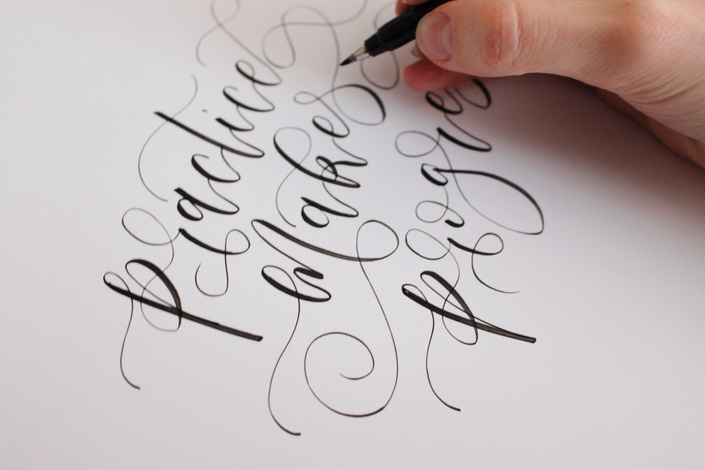 practice
Makes
progre